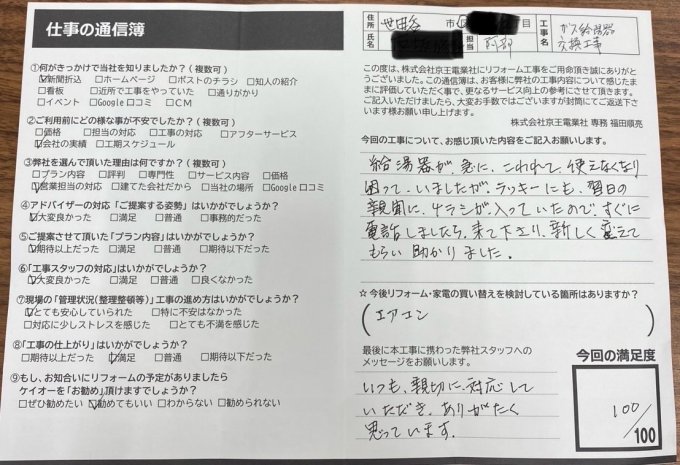 仕事の通信簿
①何がきっかけで当社を知りましたか？（複数可）
☑新聞折込 □ホームページ □ポストのチラシ □知人の紹介
□看板 □近所で工事をやっていた □通りがかり
□イベント □Google口コミ □ＣＭ
②ご利用前にどの様な事が不安でしたか？（複数可）
□価格 □担当の対応 □工事の対応 □アフターサービス
☑会社の実績 □工期スケジュール
③弊社を選んで頂いた理由は何ですか？（複数可）
□プラン内容 □評判 □専門性 □サービス内容 □価格
☑営業担当の対応 □建てた会社だから □当社の場所 □Google口コミ
④アドバイザーの対応「ご提案する姿勢」はいかがでしょうか？
☑大変良かった □満足 □普通 □事務的だった
⑤ご提案させて頂いた「プラン内容」はいかがでしょうか？
☑期待以上だった □満足 □普通 □期待以下だった
⑥「工事スタッフの対応」はいかがでしょうか？
☑大変良かった □満足 □普通 □良くなかった
⑦現場の「管理状況(整理整頓等)」工事の進め方はいかがでしょうか？
☑とても安心していられた □特に不安はなかった
□対応に少しストレスを感じた □とても不満を感じた
⑧「工事の仕上がり」はいかがでしょうか？
□期待以上だった ☑満足 □普通 □期待以下だった
⑨もし、お知合いにリフォームの予定がありましたら
ケイオーを「お勧め」頂けますでしょうか？
□ぜひ勧めたい ☑勧めてもいい □わからない □勧められない
住所 世田谷 市区 丁目
氏名 担当 阿部
工事名 ガス給湯器
交換工事
この度は、株式会社京王電業社にリフォーム工事をご用命頂き誠にありがと
うございました。この通信簿は、お客様に弊社の工事内容について感じたま
まに評価していただく事で、更なるサービス向上の参考にさせて頂きます。
ご記入いただけましたら、大変お手数ではございますが封筒にてご返送下さ
います様お願い申し上げます。
株式会社京王電業社 専務 福田順亮
今回の工事について、お感じ頂いた内容をご記入お願いします。
給湯器が、急に、こわれて、使えなくなり
困って、いましたが、ラッキーにも、翌日の
新聞に、チラシが入っていたので、すぐに
電話しましたら、来て下さり、新しく変えて
もらい助かりました。
☆今後リフォーム・家電の買い替えを検討している箇所はありますか？
（エアコン ）
最後に本工事に携わった弊社スタッフへの
メッセージをお願いします。
いつも、親切に対応して
いただき、ありがたく
思っています。
今回の満足度
100/100